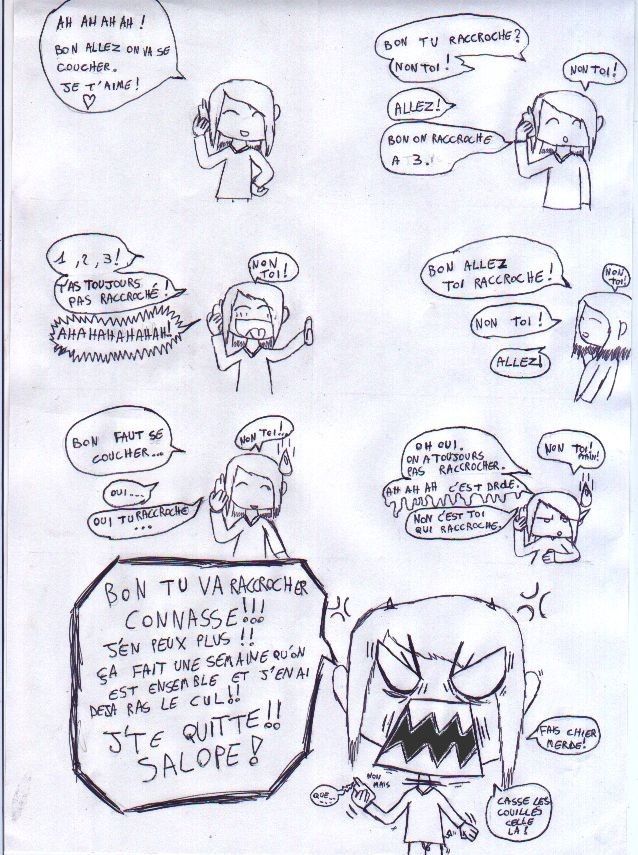 AH AH AH AH !
BON ALLEZ ON VA SE
COUCHER.
JE T'AIME !
BON TU RACCROCHE?
NON TOI !
NON TOI !
ALLEZ!
BON ON RACCROCHE
A 3.
1, 2, 3!
T'AS TOUJOURS
PAS RACCROCHÉ !
AHAHAHAHAHAH!
NON
TOI!
BON ALLEZ
TOI RACCROCHE !
NON
TOI!
NON TOI !
ALLEZ!
BON FAUT SE
COUCHER...
NON TOI...
OUI ...
OUI TU RACCROCHE
...
OH OUI.
ON A TOUJOURS
PAS RACCROCHER.
AH AH AH C'EST DROLE.
NON C'EST TOI
QUI RACCROCHE.
NON TOI!
BON TU VA RACCROCHER
CONNASSE!!!
J'EN PEUX PLUS !!
ÇA FAIT UNE SEMAINE QU'ON
EST ENSEMBLE ET J'EN AI
DEJA RAS LE CUL!!
J'TE QUITTE!!
SALOPE !
FAIS CHIER
MERDE!
NON
MAIS
QUE...
CASSE LES
COUILLES
CELLE
LA !